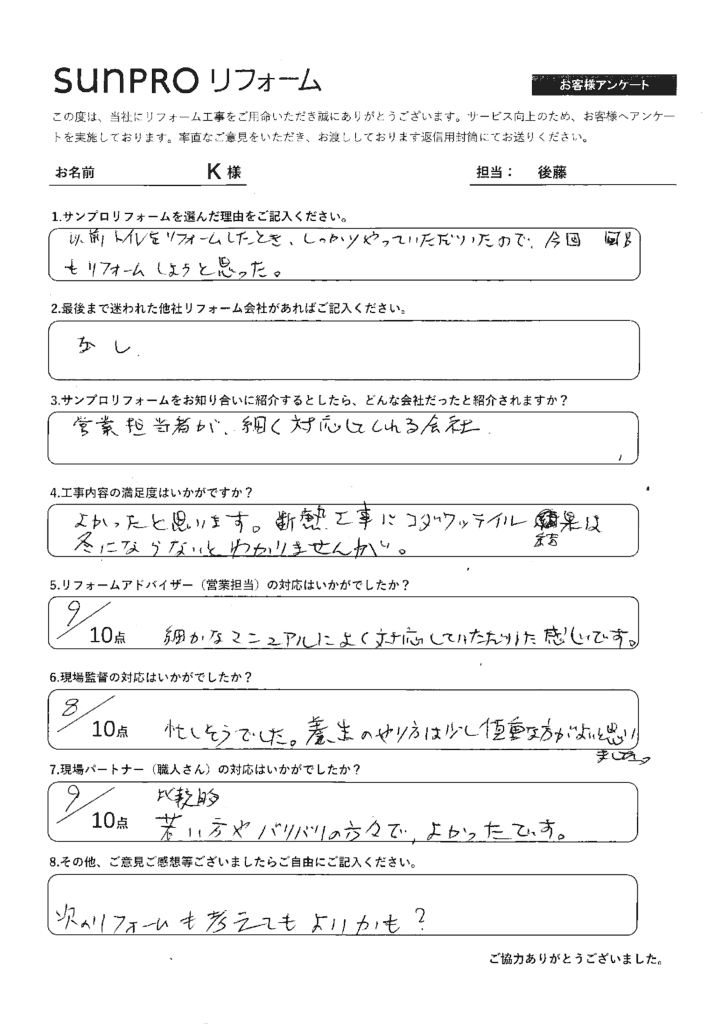 sunPRO リフォーム
お客様アンケート
この度は、当社にリフォーム工事をご用命いただき誠にありがとうございます。サービス向上のため、お客様へアンケー
トを実施しております。率直なご意見をいただき、お渡ししております返信用封筒にてお送りください。
お名前 K 様 担当： 後藤
1.サンプロリフォームを選んだ理由をご記入ください。
以前トイレをリフォームしたとき、しっかりやっていただいたので、今回
もリフォームしようと思った。
2.最後まで迷われた他社リフォーム会社があればご記入ください。
なし.
3.サンプロリフォームをお知り合いに紹介するとしたら、どんな会社だったと紹介されますか？
営業担当者が、細く対応してくれる会社.
4.工事内容の満足度はいかがですか？
よかったと思います。断熱工事にコダワッテイル 結果は
冬にならないとわかりませんが。
5.リフォームアドバイザー（営業担当）の対応はいかがでしたか？
9/10点 細かなマニュアルによく対応していただいた感じです。
6.現場監督の対応はいかがでしたか？
8/10点 忙しそうでした。養生のやり方は少し慎重な方がよいと思い
ました。
7.現場パートナー（職人さん）の対応はいかがでしたか？
9/10点 比較的
若い方やバリバリの方々で、よかったです。
8.その他、ご意見ご感想等ございましたらご自由にご記入ください。
次のリフォームも考えてもよいかも？
ご協力ありがとうございました。